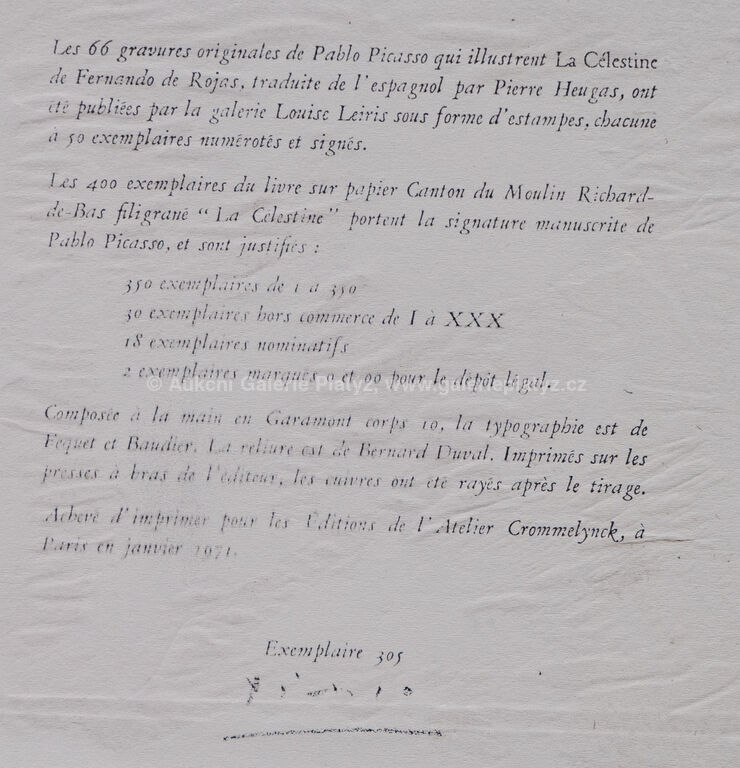 Les 66 gravures originales de Pablo Picasso qui illustrent La Célestine
de Fernando de Rojas, traduite de l'espagnol par Pierre Heugas, ont
été publiées par la galerie Louise Leiris sous forme d'estampes, chacune
à 50 exemplaires numérotés et signés.
Les 400 exemplaires du livre sur papier Canton du Moulin Richard-
de-Bas filigrané “La Célestine” portent la signature manuscrite de
Pablo Picasso, et sont justifiés :
350 exemplaires de 1 à 350
30 exemplaires hors commerce de I à XXX
18 exemplaires nominatifs
2 exemplaires marqués 0 et 00 pour le dépôt légal.
© Aukční Galerie Platýz, www.galerieplatyz.cz
Composée à la main en Garamont corps 10, la typographie est de
Fequet et Baudier. La reliure est de Bernard Duval. Imprimés sur les
presses à bras de l'éditeur, les cuivres ont été rayés après le tirage.
Achevé d'imprimer pour les Éditions de l'Atelier Crommelynck, à
Paris en janvier 1971.
Exemplaire 305
Picasso